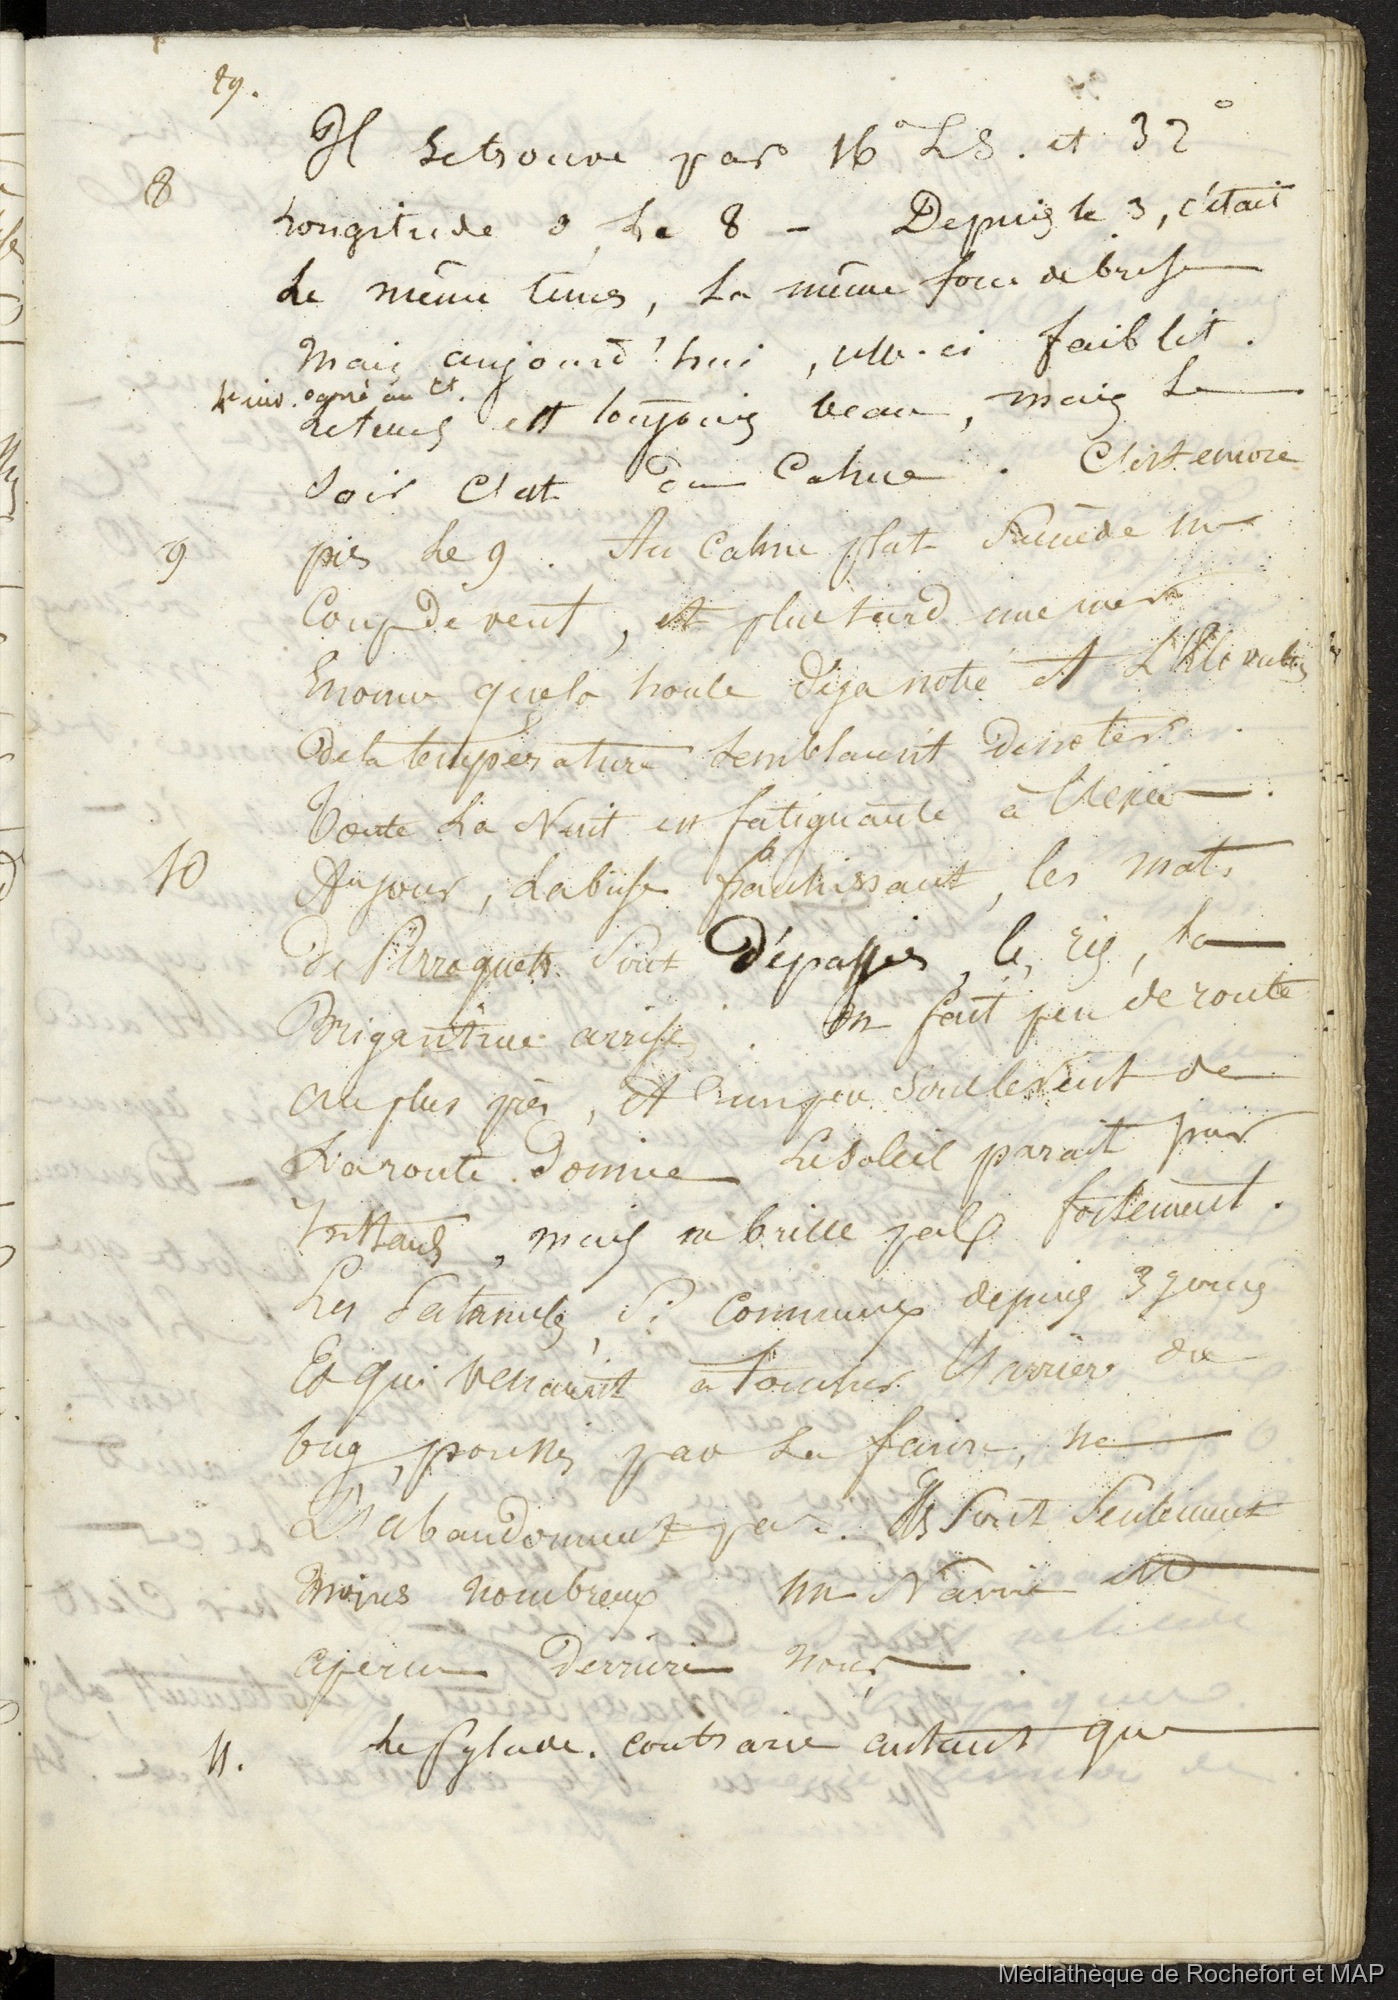 29.
Il se trouve par 16° L S. et 32°
8
Longitude O, Le 8 - Depuis le 3, c'était
Le même tems, La même force de brise
Mais aujourd'hui, celle-ci faiblit.
Le
Le tems est toujours beau, mais Le
Soir C'est du Calme. C'est encore
9
pis Le 9. Au Calme plat Succède un
Coup de vent, et plus tard une mer
Enorme que la houle déja notée et L'élévation
de la température Semblaient dénoter.
Toute La Nuit est fatiguante à l'excès.
10
Au jour, La brise fraichissant, les mats
de Perroquets Sont Dépassés, le ris, La
Brigantine arrisée. On fait peu de route
au plus près, et un peu Sous le Vent de
La route Donnée Le Soleil parait par
Instans, mais ne brille pas fortement.
Les Satanicles, Si Communs depuis 3 jours
Et qui venaient à toucher L'arrière du
brig, poussés par La faim, ne
L'abandonnent pas. Ils Sont Seulement
Moins nombreux Un Navire est
aperçu Derrière nous.
11.
Le Pylade. contrarié autant que
Médiathèque de Rochefort et MAP